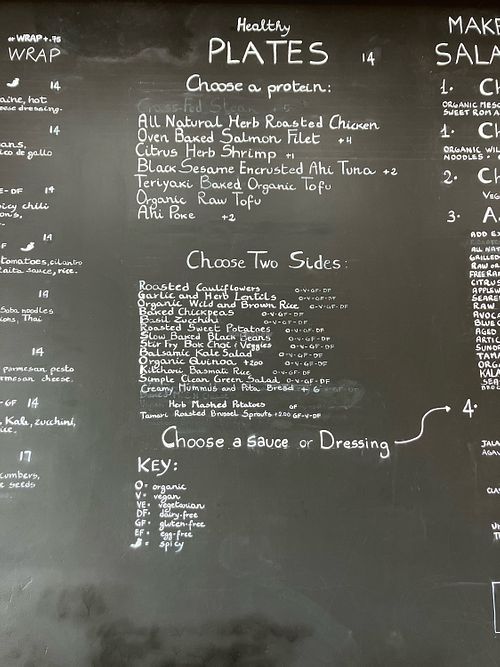 or WRAP +.75
WRAP
14
aine, hot
dressing.
14
ans,
ico de gallo
E-DF 14
icy chili
on's,
F 14
tomatoes, cilantro
aita sauce, rice.
14
Soba noodles
ions, Thai
14
parmesan, pesto
rmesan cheese.
-GF 14
Kale, zucchini,
ice.
17
cumbers,
e seeds
Healthy
PLATES 14
Choose a protein:
Grass-Fed Steak + 5
All Natural Herb Roasted Chicken
Oven Baked Salmon Filet +4
Citrus Herb Shrimp +1
Black Sesame Encrusted Ahi Tuna +2
Teriyaki Baked Organic Tofu
Organic Raw Tofu
Ahi Poke +2
Choose Two Sides:
Roasted Cauliflowers O-V-GF-DF
Garlic and Herb Lentils O-V-GF-DF
Organic Wild and Brown Rice O-V-GF-DF
Baked Chickpeas O-V-GF-DF
Basil Zucchini O-V-GF-DF
Roasted Sweet Potatoes O-V-GF-DF
Slow Baked Black Beans O-V-GF-DF
Stir Fry Bok Choy & Veggies O-V-GF-DF
Balsamic Kale Salad O-V-GF-DF
Organic Quinoa +2.00 O-V-GF-DF
Kitchari Basmati Rice O-V-GF-DF
Simple Clean Green Salad O-V-GF-DF
Creamy Hummus and Pita Bread + 6 O-V-GF-DF
Herb Mashed Potatoes GF
Tamari Roasted Brussel Sprouts +2.00 GF-V-DF
Choose a sauce or Dressing
KEY:
O= organic
V= vegan
VE= vegetarian
DF= dairy-free
GF= gluten-free
EF= egg-free
= spicy
MAKE
SALA
1. Ch
ORGANIC MESC
SWEET ROMA
1. Ch
ORGANIC WIL
NOODLES
2. Ch
VEG
3. A
ADD EX
ALL NAT
GRILLED
RAW OR
FREE RAN
CITRUS
APPLEW
SEARE
RAW
AVOCA
BLUE C
AGED
ARTIC
SUNDR
TOM
ORG
KALA
SEA
BRO
4.
JALA
AGAV